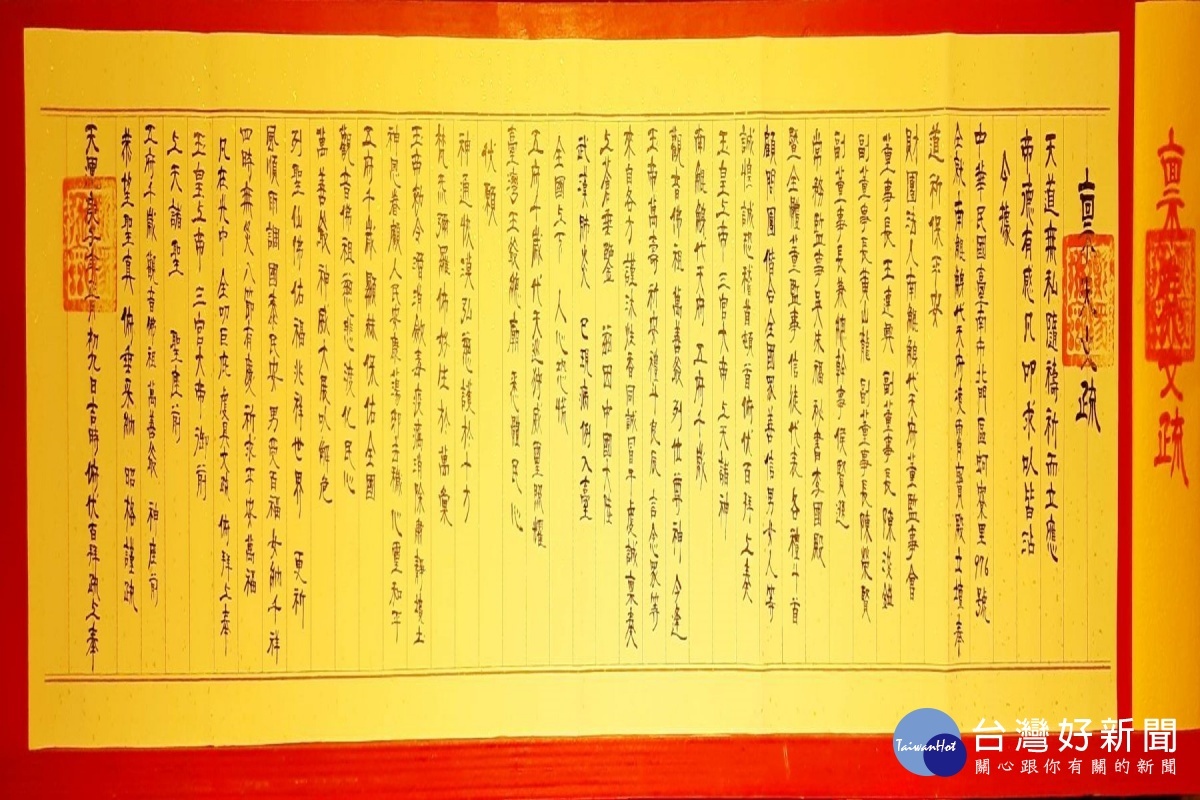 疏
天道無私隨禱祈而立應
帝德有感凡叩求以皆沾
今據
中華民國臺南市北門區蚵寮里976號
全銜南鯤鯓代天府凌霄寶殿立壇奉
道祈保平安
財團法人南鯤鯓代天府董監事會
董事長王達興 副董事長陳淡鐘
副董事長黃山龍 副董事長陳榮賢
副董事長兼總幹事侯賢遜
常務監事吳

福秘書李國殿
暨全體董監事信徒代表各禮千首
顧問團偕合全國眾善信男女人等
誠惶誠恐稽首頓首俯伏百拜上奏
玉皇上帝 三官大帝 上天諸神
南鯤鯓代天府 五府千歲
觀音佛祖 萬善爺 列位尊神 今逢
玉帝萬壽祈安禮斗良辰 言念眾等
來自各方謹沐炷香同誠皆來虔誠稟奏
上蒼奉聖 茲因中國大陸
武漢肺炎 已現病例入臺
全國上下 人心恐慌
五府千歲代天巡狩威靈顯耀
臺灣王爺總廟 悉體民心
伏願
神通恢漠弘慈護於十方
梵炁彌羅佈好生於萬彙
玉帝敕令潛消歛毒疫癘消除肅靜境土
神恩眷顧人民安康蕩邪去穢心靈和平
五府千歲顯赫保佑全國
觀音佛祖慈悲渡化民心
萬善爺神威大展以解危
列聖仙佛佑福兆祥世界 更祈
風順雨調國泰民安 男受百福女納千祥
四時無災八節有慶祈求平安萬福
凡在光中全叨庇度具文疏 俯拜上奉
玉皇上帝 三官大帝 御前
上天諸聖 聖座前
五府千歲觀音佛祖萬善爺 神座前
恭望聖真俯垂采納 昭格謹疏
天運庚子年正月初九日吉時俯伏百拜疏上奉
文疏
TaiwanHot
台灣好新聞
關心跟你有關的新聞